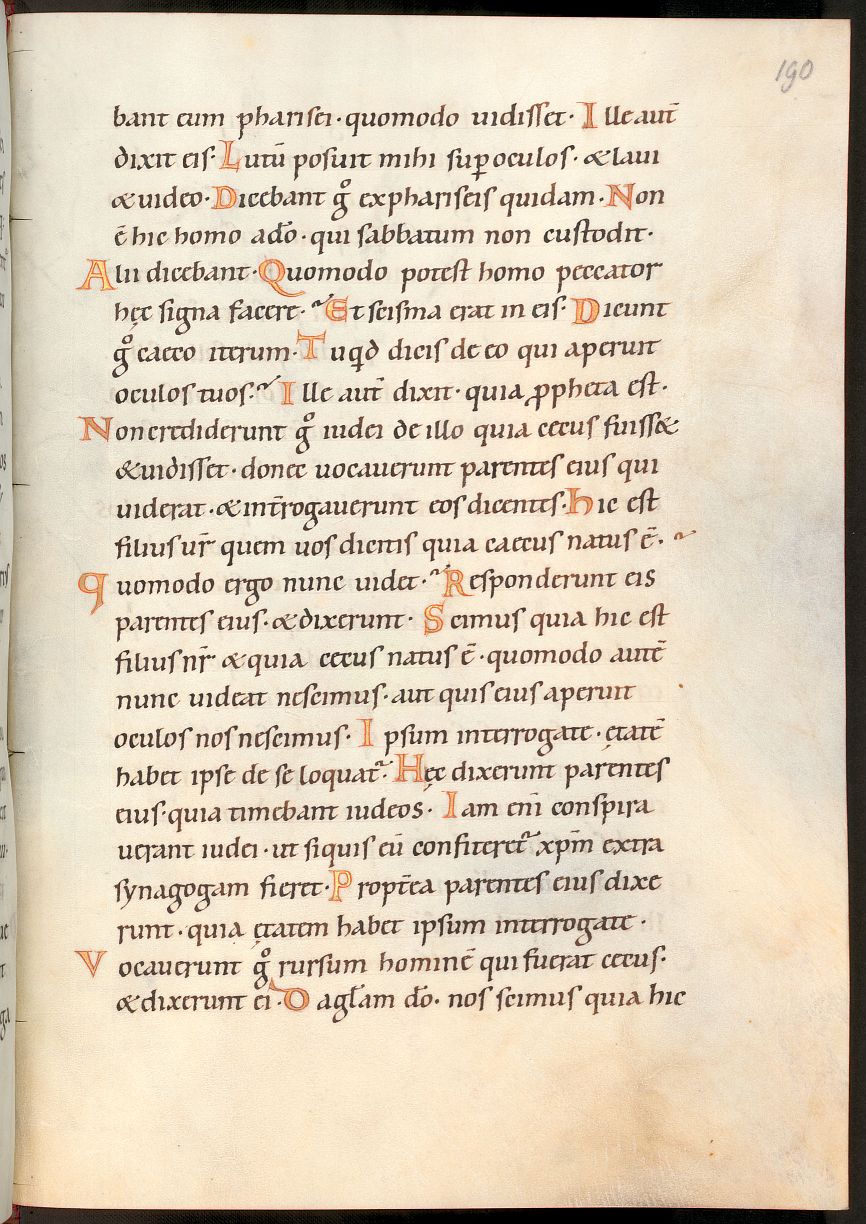 190
bant eum pharisei · quomodo uidisset · Ille aut̄
dixit eis · Lutū posuit mihi suꝑ oculos · & laui
& uideo · Dicebant gͦ ex phariseis quidam · Non
ē hic homo a dō · qui sabbatum non custodit ·
Alii dicebant · Quomodo potest homo peccator
hęc signa facere · Et scisma erat in eis · Dicunt
gͦ caeco iterum · Tu qd̄ dicis de eo qui aperuit
oculos tuos · Ille aut̄ dixit · quia ꝓpheta est ·
Non crediderunt gͦ iudei de illo quia cecus fuiss&
& uidisset · donec uocauerunt parentes eius qui
uiderat · & int̄rogauerunt eos dicentes · hic est
filius ur̄ quem uos dicitis quia caecus natus ē ·
quomodo ergo nunc uidet · Responderunt eis
parentes eius · & dixerunt · Scimus quia hic est
filius nr̄ & quia cecus natus ē · quomodo autē
nunc uideat nescimus · aut quis eius aperuit
oculos nos nescimus · Ipsum interrogate · ętatē
habet ipse de se loquat᷑ · Hęc dixerunt parentes
eius · quia timebant iudeos · Iam eni̅ conspira
uerant iudei · ut siquis eū confiteret᷑ xpm̄ extra
synagogam fieret · Propt̄ea parentes eius dixe
runt · quia ętatem habet ipsum interrogate ·
Vocauerunt gͦ rursum hominē qui fuerat cecus ·
& dixerunt ei · Da gl̄am dō · nos scimus quia hic